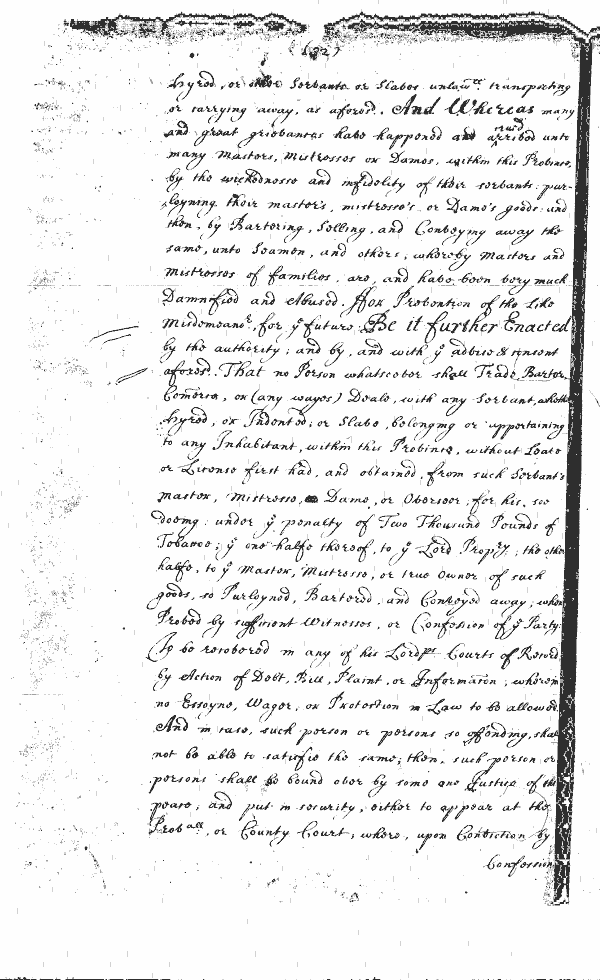 (127)
hyred, or other Servants or Slaves unlaw.ll transporting
or carrying away, as afores.d. And Whereas many
and great grievances have happened and arrived unto
many Masters, Mistresses or Dames, within this Province,
by the wickednesse and infidelity of their servants pur-
loyning their master's, mistresse's or Dame's goods; and
then, by Bartering, Selling, and Conveying away the
same, unto Seamen, and others; whereby Masters and
Mistresses of families are, and have been very much
Damnified and Abused. ffor Prevention of the like
Misdemean.rs, for ye future, Be it further Enacted
by the authority; and by, and with ye advise & consent
afores.d. That no Person whatsoever shall Trade, Barter,
Comerce, or (any wayes) Deale, with any Servant, whether
hyred, or Indented; or Slave, belonging or appertaining
to any Inhabitant, within this Province, without Leave
or License first had, and obtained, from such Servant's
master, Mistresse, Dame, or Overseer; for his, soe
doeing: under ye penalty of Two Thousand Pounds of
Tobacco; ye one halfe thereof, to ye Lord Prop.ry; the other
halfe, to ye Master, Mistresse, or true Owner of such
goods, so Purloyned, Bartered, and Conveyed away; when
Proved by sufficient Witnesses, or Confession of ye Party:
To be recovered in any of his Lordp.s Courts of Record
by Action of Debt, Bill, Plaint, or Information; wherein
no Essoyne, Wager, or Protection in Law to be allowed.
And in case, such person or persons so offending, shall
not be able to satisfie the same; then, such person or
persons shall be bound over by some one Justice of the
peace; and put in security, either to appear at the
Prov.all, or County Court; where, upon Conviction by
Confession